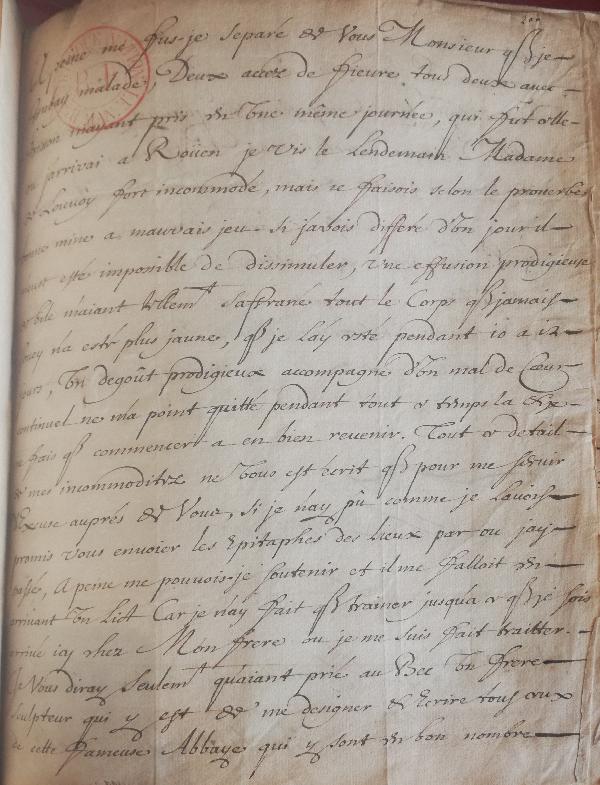 200
A peine me fus-je separé de Vous Monsieur q̃ je
tombay malade, Deux accez de fievre tous deux avec
frisson mayant pris en une même journée, qui fut celle
ou jarrivai a Roüen je vis le lendemain Madame
de Louvoÿ fort incommodé, mais je faisois selon le proverbe
bonne mine a mauvais jeu. Si javois differé d'un jour il
meust esté imposible de dissimuler, une effusion prodigieuse
de bile m'aiant tellemt saffrané tout le Corps q̃ jamais
na esté plus jaune, q̃ je lay esté pendant 10 a 12
jours, Un degoût prodigieux accompagné d'un mal de Cœur
continuel ne ma point quitté pendant tout ce temps la Et je
ne fais q̃ commencer a en bien revenir. Tout ce detail
de mes incommoditez ne vous est ecrit q̃ pour me servir
d'Excuse auprés de Vous, si je nay pû comme je lavois
promis vous envoier les Epitaphes des lieux par ou jay
passé, A peine me pouvois-je soutenir et il me falloit en
arrivant un Lict Car je nay fait q̃ trainer jusqua ce q̃ je sois
arrivé icy chez Mon frere ou je me suis fait traitter.
Je Vous diray seulemt quaiant prié au Bec un frere
sculpteur qui y est de me designer & Ecrire tous ceux
de cette fameuse Abbaye qui y sont en bon nombre